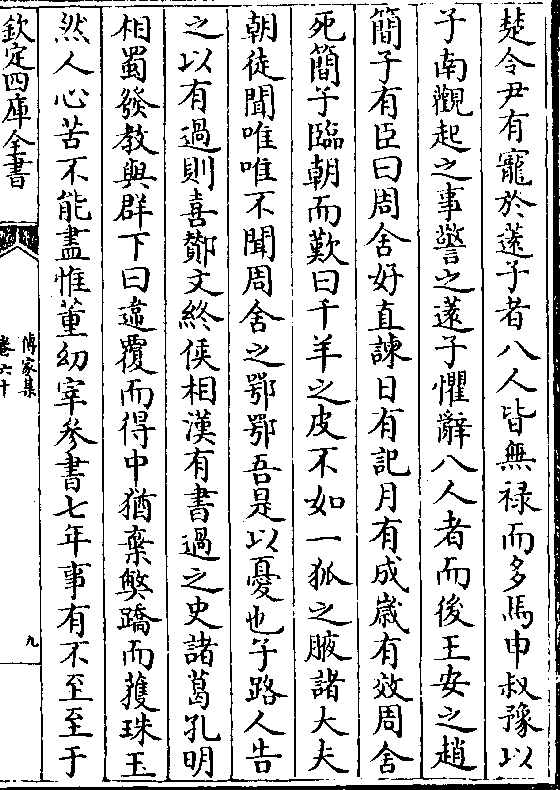 楚令尹有寵於薳子者八人皆無禄而多馬申叔豫以
子南觀起之事警之薳子懼辭八人者而後王安之趙
簡子有臣曰周舍好直諫日有記月有成歲有效周舍
死簡子臨朝而歎曰千羊之皮不如一狐之腋諸大夫
朝徒聞唯唯不聞周舍之鄂鄂吾是以憂也子路人告
之以有過則喜酇文終侯相漢有書過之史諸葛孔明
相蜀發教與群下曰違覆而得中猶棄弊蹻而獲珠玉
然人心苦不能盡惟董幼宰參書七年事有不至至于
欽定四庫全書
傳家集
卷六十
九